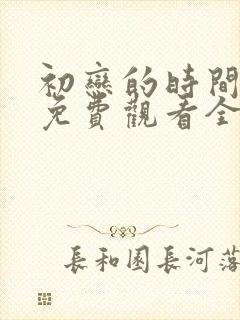 初戀的時間
免費觀看全
長和園長河落